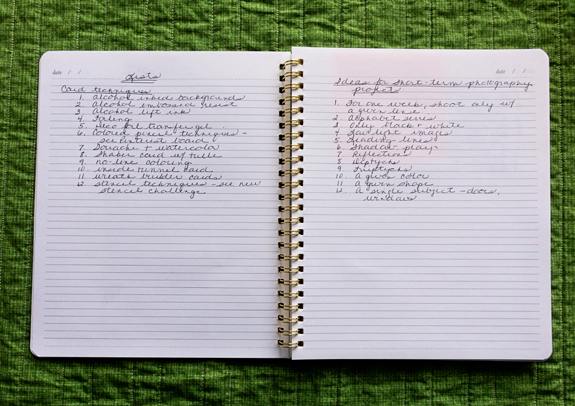 date / /
Lists
Card techniques
1. Alcohol inked backgrounds
2. Alcohol embossed resist
3. Alcohol lift ink
4. Foiling
5. Deco foil transfer gel
6. Colored pencil techniques -
see Pinterest board
7. Gouache + watercolor
8. Shaker card w/ tube
9. no-line coloring
10. inside tunnel card
11. wreath builder cards
12. Stencil techniques - see new
stencil challenge
date / /
Ideas for short-term photography
projects
1. For one week, shoot only w/
a given lens
2. Alphabet series
3. Only black + white
4. Low light images
5. Leading lines
6. Shadow play
7. Reflections
8. Diptychs
9. Triptychs
10. A given color
11. A given shape
12. A single subject - doors,
windows